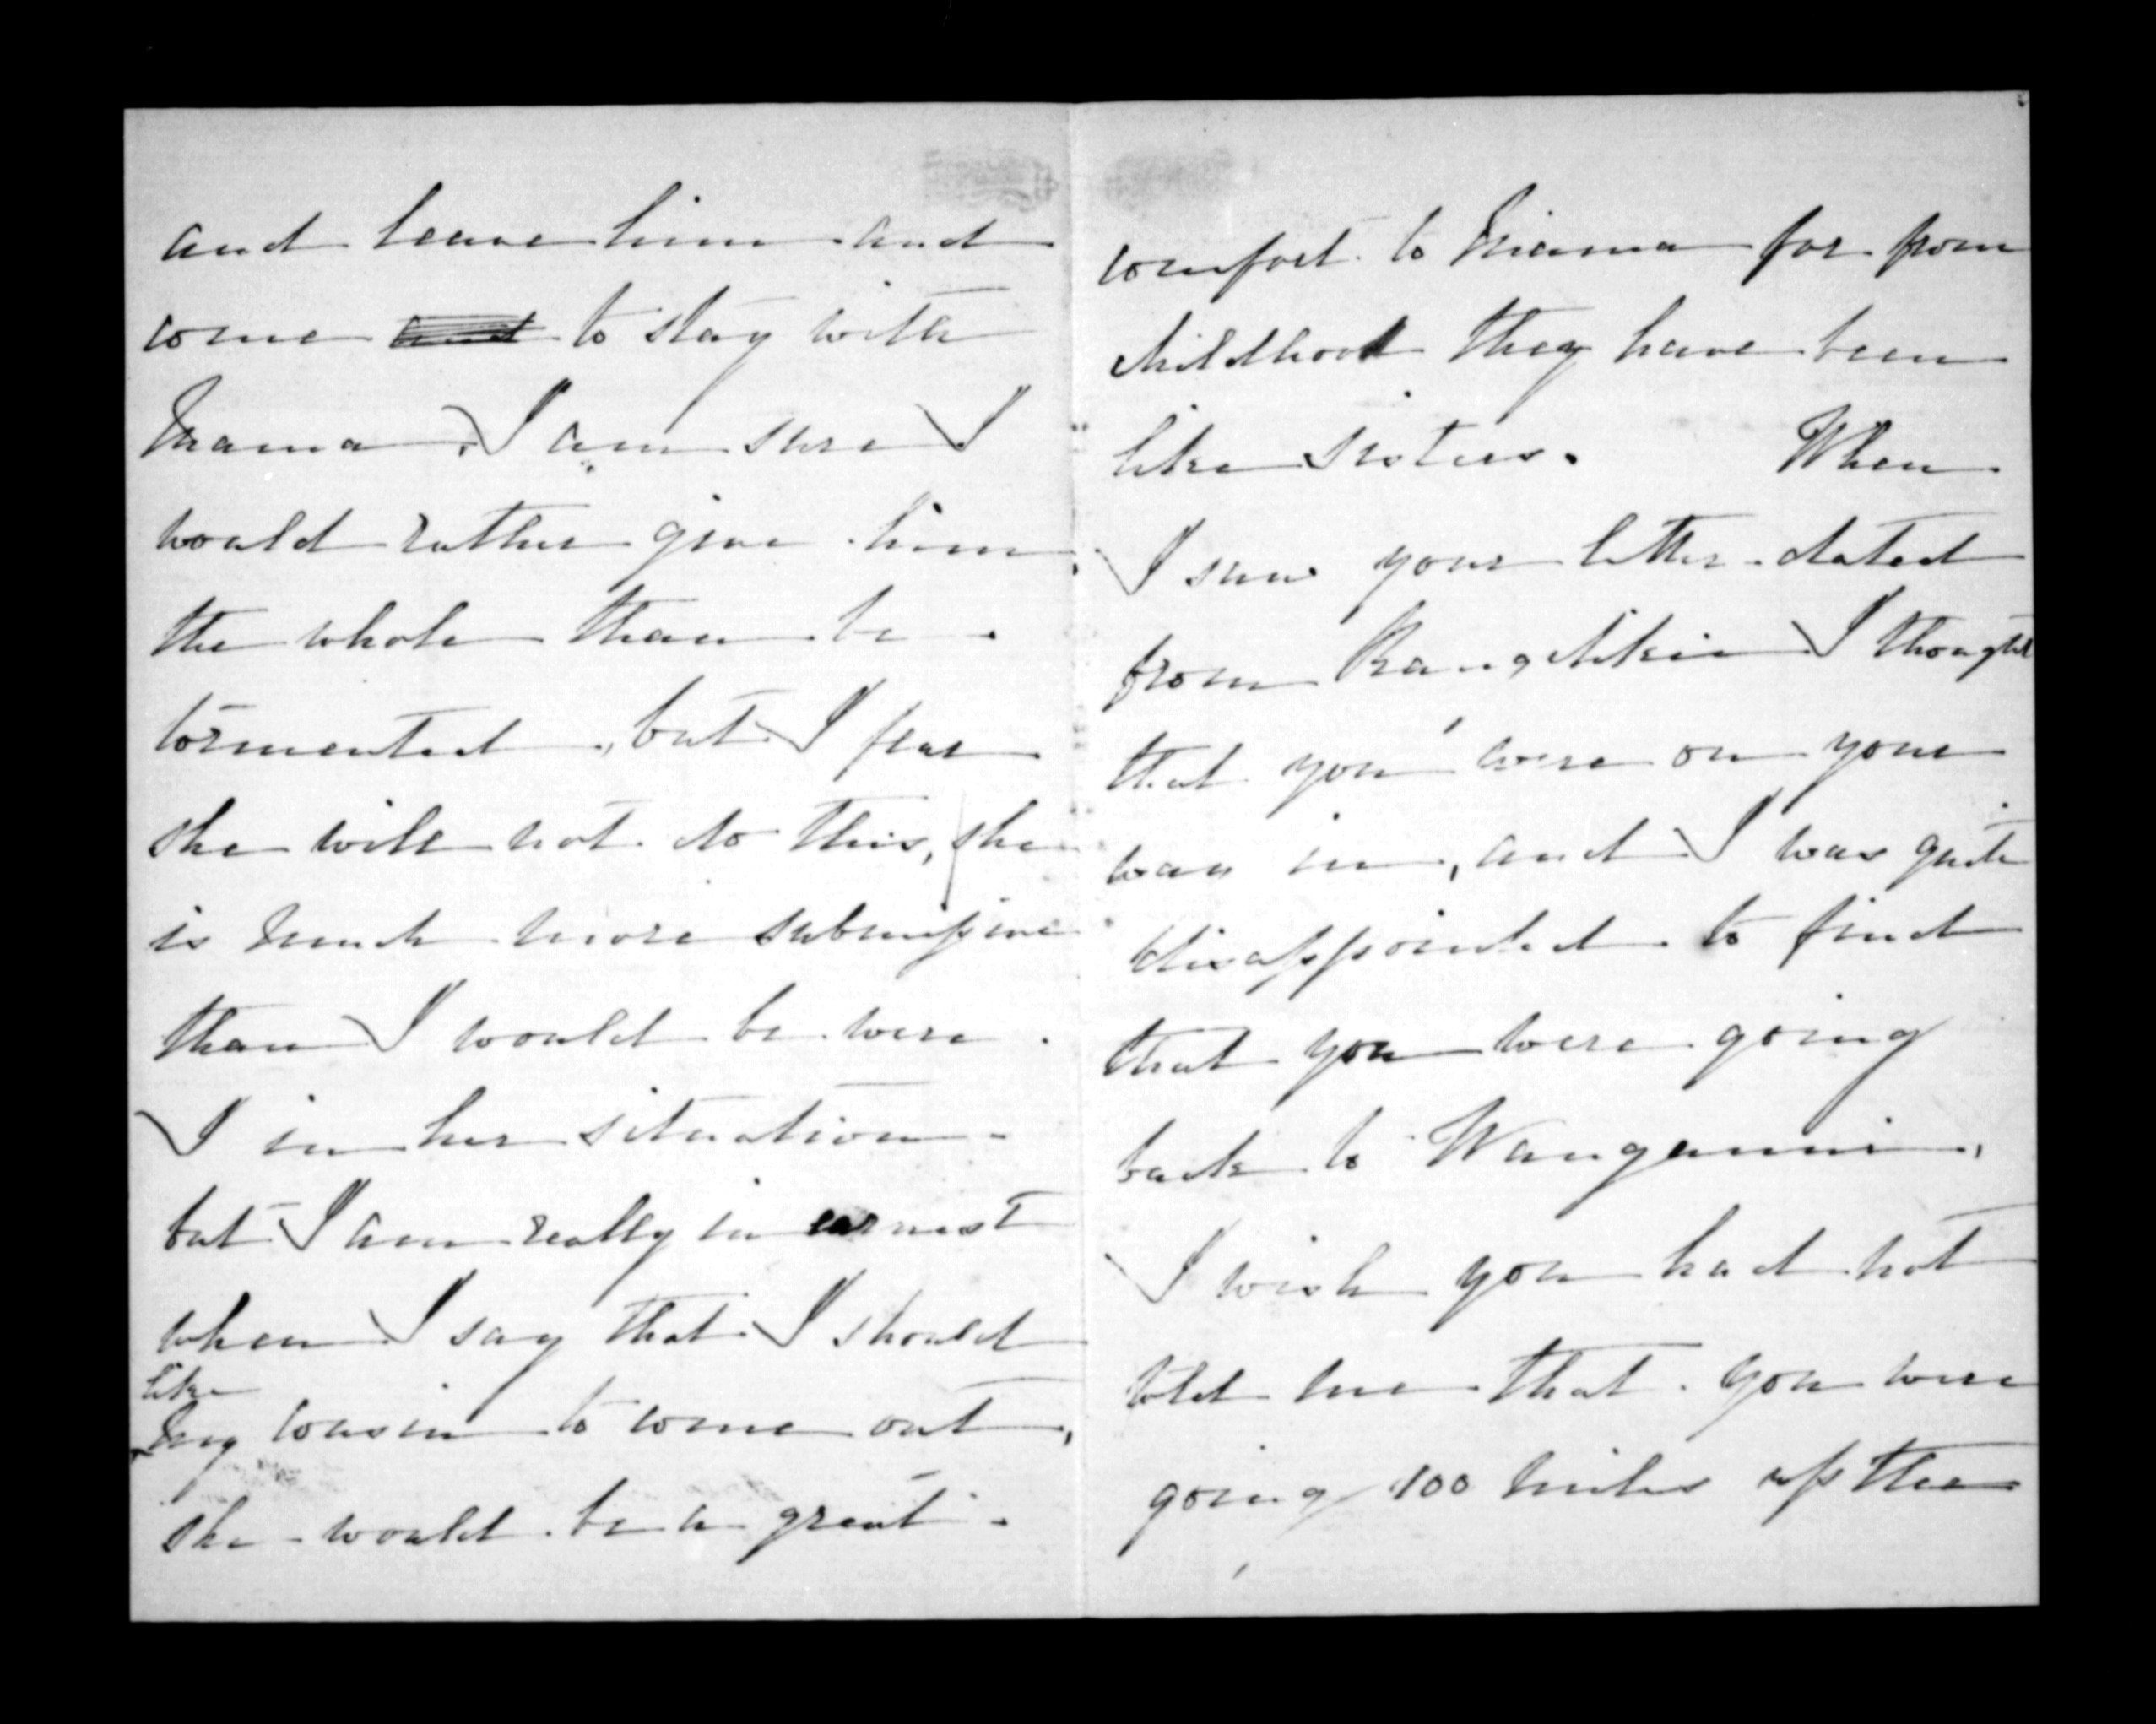 and leave him and
come and to stay with
Mama, I am sure I
would rather give him
the whole than be
tormented, but I fear
she will not do this, she
is much more submissive
than I would be were
I in her situation
but I am really in earnest
when I say that I should
like
my cousin to come out,
she would be a great
comfort to Mama for from
childhood they have been
like sisters. When
I saw your letter dated
from Rangitikie I thought
that you were on your
way in, and I was quite
disappointed to find
that you were going
back to Wanganui,
I wish you had not
told me that you were
going 100 miles up the